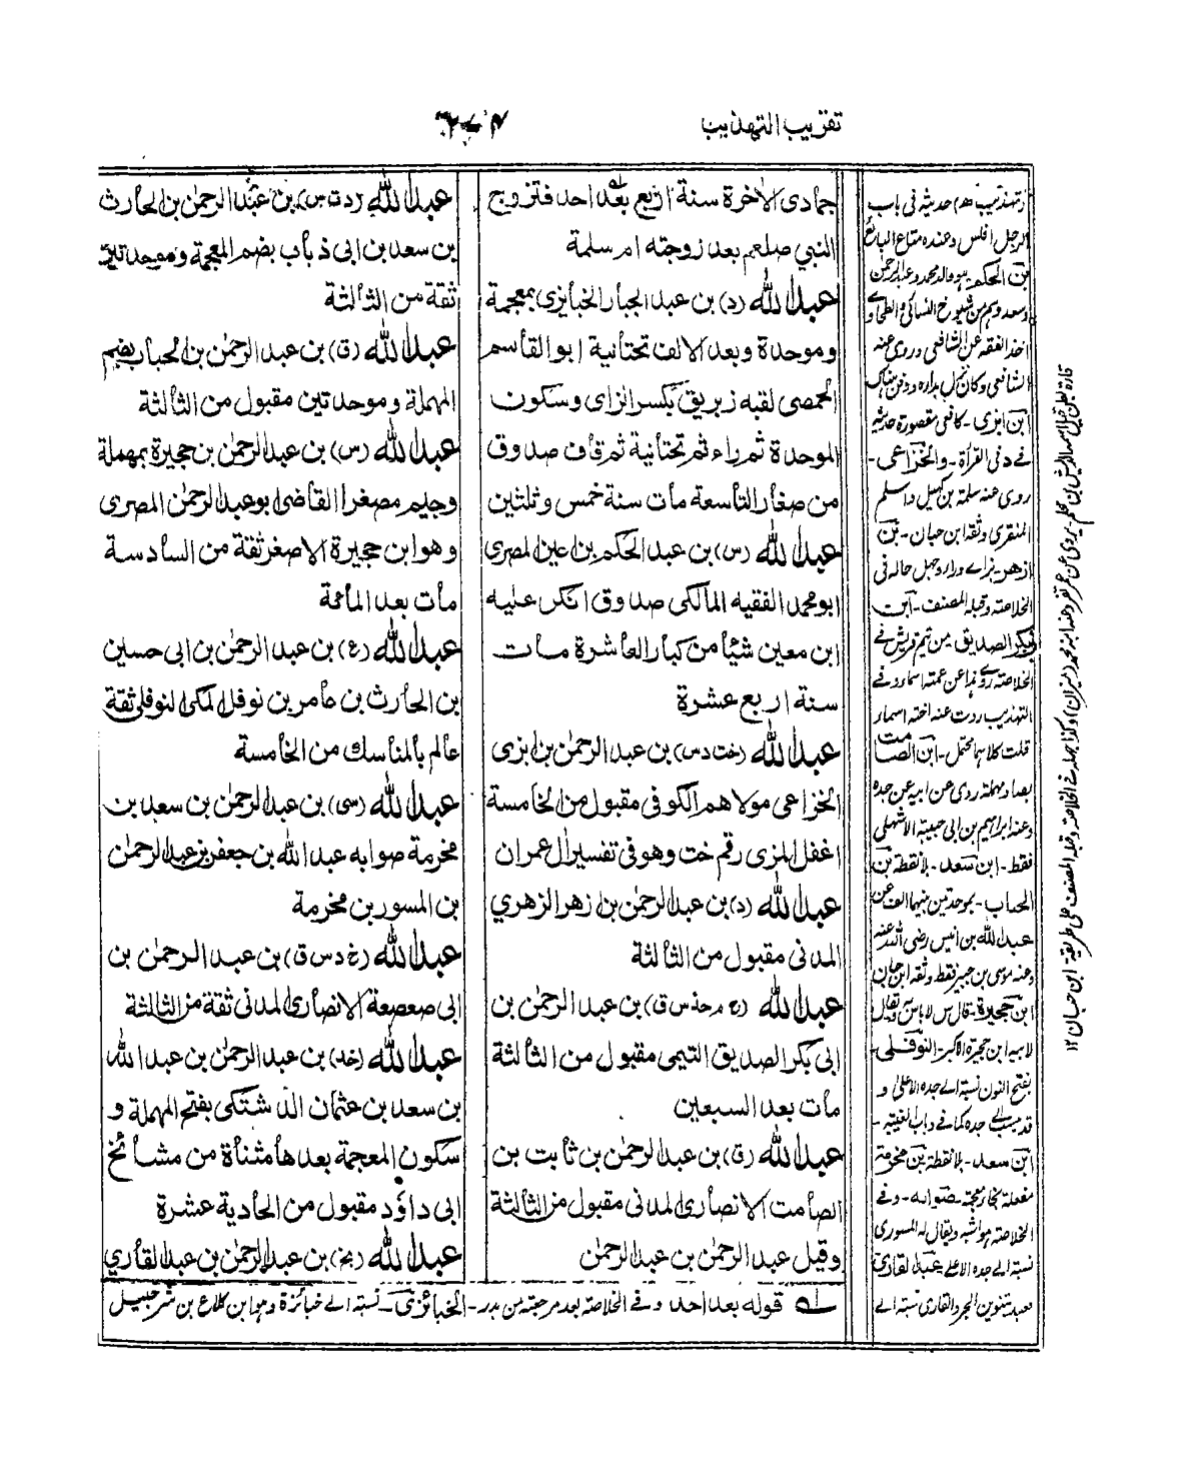 تقريب التهذيب
جمادى الاخرة سنة اربع بعد احد فتزوج
النبي صلعم بعد زوجته ام سلمة
عبد الله (د) بن عبد الجبار الخبايزي بمعجمة
وموحدة وبعد الالف تحتانية ابو القاسم
الحمصي لقبه زبريق بكسر الزاى وسكون
الموحدة ثم راء ثم تحتانية ثم قاف صدوق
من صغار التاسعة مات سنة خمس وثلثين
عبد الله (س) بن عبد الحكم بن اعين المصري
ابو محمد الفقيه المالكى صدوق انكر عليه
ابن معين شيأ من كبار العاشرة مات
سنة اربع عشرة
عبد الله (خت د س) بن عبد الرحمٰن بن ابزى
الخزاعى مولاهم الكوفى مقبول من الخامسة
اغفل المزى رقم خت وهو فى تفسير ال عمران
عبد الله (د) بن عبد الرحمٰن بن ازهر الزهري
المدنى مقبول من الثالثة
عبد الله (خ م خد س ق) بن عبد الرحمٰن بن
ابى بكر الصديق التيمى مقبول من الثالثة
مات بعد السبعين
عبد الله (ق) بن عبد الرحمٰن بن ثابت بن
الصامت الانصارى المدنى مقبول من الثالثة
وقيل عبد الرحمٰن بن عبد الرحمٰن
عبد الله (د ت س) بن عبد الرحمٰن بن الحارث
بن سعد بن ابى ذباب بضم المعجمة وموحدتين
ثقة من الثالثة
عبد الله (ق) بن عبد الرحمٰن بن الحباب بضم
المهملة وموحدتين مقبول من الثالثة
عبد الله (س) بن عبد الرحمٰن بن حجيرة بمهملة
وجيم مصغرا القاضى ابو عبد الرحمٰن المصرى
وهو ابن حجيرة الاصغر ثقة من السادسة
مات بعد المائة
عبد الله (ع) بن عبد الرحمٰن بن ابى حسين
بن الحارث بن عامر بن نوفل المكى النوفلى ثقة
عالم بالمناسك من الخامسة
عبد الله (سى) بن عبد الرحمٰن بن سعد بن
مخرمة صوابه عبد الله بن جعفر بن عبد الرحمٰن
بن المسور بن مخرمة
عبد الله (خ د س ق) بن عبد الرحمٰن بن
ابى صعصعة الانصارى المدنى ثقة من الثالثة
عبد الله (خد) بن عبد الرحمٰن بن عبد الله
بن سعد بن عثمان الدشتكى بفتح المهملة و
سكون المعجمة بعدها مثناة من مشائخ
ابى داؤد مقبول من الحادية عشرة
عبد الله (بخ) بن عبد الرحمٰن بن عبد القاري
قوله بعد احد وفى الخلاصة بعد مرجعته من بدر - الخبائزى - نسبة الى خبائزة وهو ابن كلاع بن شرحبيل
حديثه فى باب
الرجل افلس وعنده متاع البائع
بن الحكم - هو والد محمد وعبد الرحمن
وسعد وهم من شيوخ النسائى والطحاوى
اخذ الفقه عن الشافعى وروى عنه
ابن ابزى - كافعى مقصورة حديثه
فى القرأة - والخزاعى -
روى عنه سلمة بن كهيل واسلم
المنقرى وثقه ابن حبان - بن
ازهر - بزاء وراء وجهل حاله فى
الخلاصة وقبله المصنف - ابن
ابى بكر الصديق من تيم قريش فى
التهذيب روت عنه اخته اسماء
قلت كلاهما محتمل - ابن الصامت
بصاد مهملة روى عن ابيه عن جده
وعنه ابراهيم بن ابى حبيبة الاشهلى
فقط - ابن سعد - لا نقطة بن
الحباب - بموحدتين بينهما الف عن
عبد الله بن انيس رضى الله عنه
وعنه موسى بن جبير فقط وثقه ابن حبان
ابن حجيرة - قال س لا باس به ويقال
لابيه ابن حجيرة الاكبر - النوفلى -
بفتح النون نسبة الى جده الاعلى و
ابن سعد - لا نقطة بن مخرمة
نسبة الى جده الاعلى عبد القارى